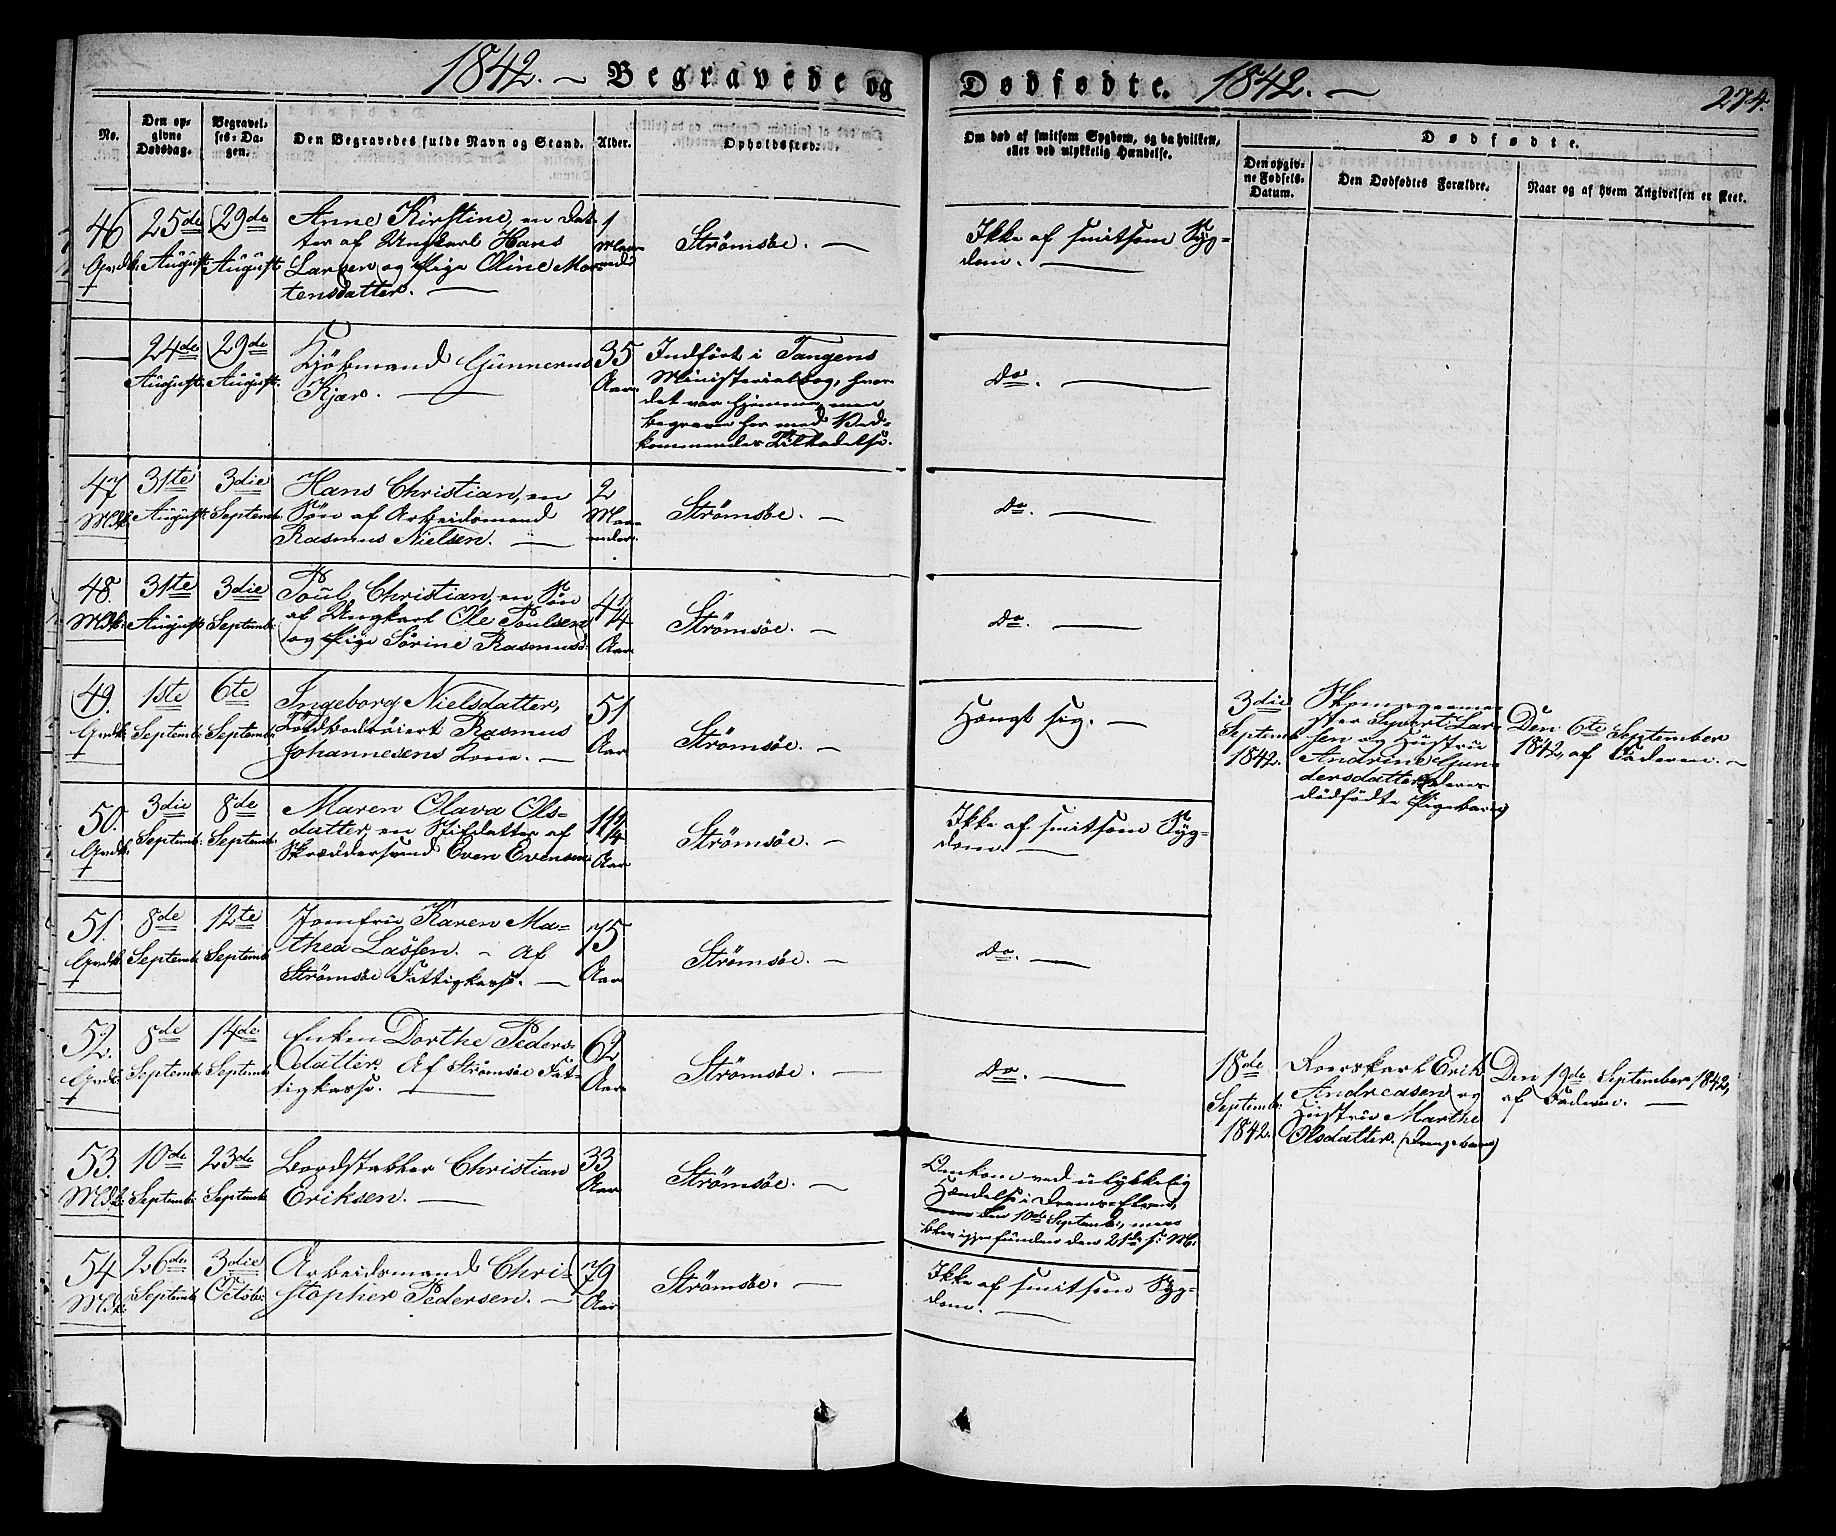 1842. — Begravede og Dødfødte. 1842. —
274.
No.
Den op-
givne
Dødsdag.
Begravel-
ses-Da-
gen.
Den Begravedes fulde Navn og Stand.
Alder.
Opholdssted.
Om død af smitsom Sygdom, og da hvilken,
eller ved ulykkelig Hændelse.
Dødfødte.
Den opgiv-
ne Fødsels-
Datum.
Den Dødfødtes Forældre.
Naar og af hvem Angivelsen er skeet.
46
25de
August
29de
August
Anne Kirstine, en Dat-
ter af Ungkarl Hans
Larsen og Pige Oline Mor-
tensdatter. —
1
Maaned
Strømsøe. —
Ikke af smitsom Syg-
dom. —
24de
August
29de
August
Kjöbmand Gunnerus
Kjær. —
35
Aar
Indført i Tangens
Ministerialbog, hvor
det var hjemme, men
begravet her med Ved-
kommendes Tilladelse.
Do. —
47
Mdk.
31te
August
3die
Septemb.
Hans Christian, en
Søn af Arbeidsmand
Rasmus Nielsen. —
2
Maa-
neder.
Strømsöe. —
Do. —
48.
Mdk.
31te
August
3die
Septemb.
Poul Christian, en Søn
af Ungkarl Ole Poulsen
og Pige Sörine Rasmusd.
4 1/4
Aar
Strømsöe. —
Do. —
49.
1ste
Septemb.
6te
Septemb.
Ingeborg Nielsdatter,
Rasmus
Johannesens Kone. —
51
Aar
Strømsöe. —
Hængt sig. —
3die
Septemb.
1842.
Skomagerme-
ster Syvert Lar-
sen og Hustrue
Andrine Gun-
dersdatter (deres
dödfödte Pigebarn)
Den 6te September
1842, af Faderen. —
50.
3die
Septemb.
8de
Septemb.
Maren Olava Ols-
datter, en Stifdatter af
Skræddersvend Even Evensen
11 1/4
Aar
Strømsöe. —
Ikke af smitsom Syg-
dom. —
51.
8de
Septemb.
12te
Septemb.
Jomfrue Karen Ma-
thea Lassen. — Af
Strömsöe Fattigkasse. —
75
Aar
Strømsöe. —
Do. —
52.
8de
Septemb.
14de
Septemb.
Enken Dorthe Peders-
datter. Af Strömsöe Fat-
tigkasse. —
62
Aar
Strømsöe. —
Do. —
18de
Septemb.
1842.
Erik
Andreasen og
Hustrue Marthe
Olsdatter. (Drengebarn)
Den 19de September 1842,
af Faderen. —
53.
Mdk.
10de
Septemb.
23de
Septemb.
Bordstabler Christian
Eriksen. —
33
Aar
Strømsöe. —
Omkom ved ulykkelig
Hændelse i Drams-Elven,
den 10de Septemb., men
blev igjenfunden den 21de s. M.
54
Mdk.
26de
Septemb.
3die
Octob.
Arbeidsmand Chri-
stopher Pedersen. —
79
Aar
Strømsöe. —
Ikke af smitsom Syg-
dom. —